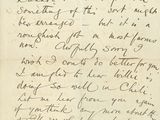 something of this sort might
be arranged - but it is a
roughish job on most farms
now. Awfully sorry I
wish I could do better for you
I am glad to hear Willie is
doing so well in Chile
Let me hear from you again
if you think any more about the